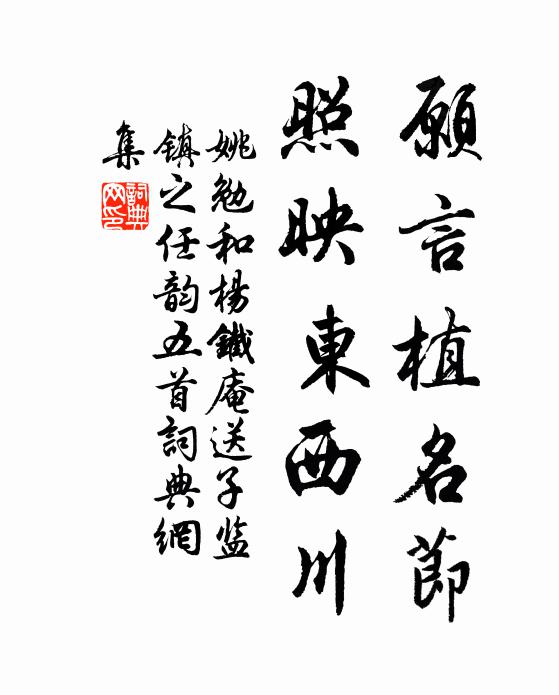 願言植名節
照映東西川
姚勉和楊鐵庵送子监
鎮之任韵五首詞典網
集
詞典
网印